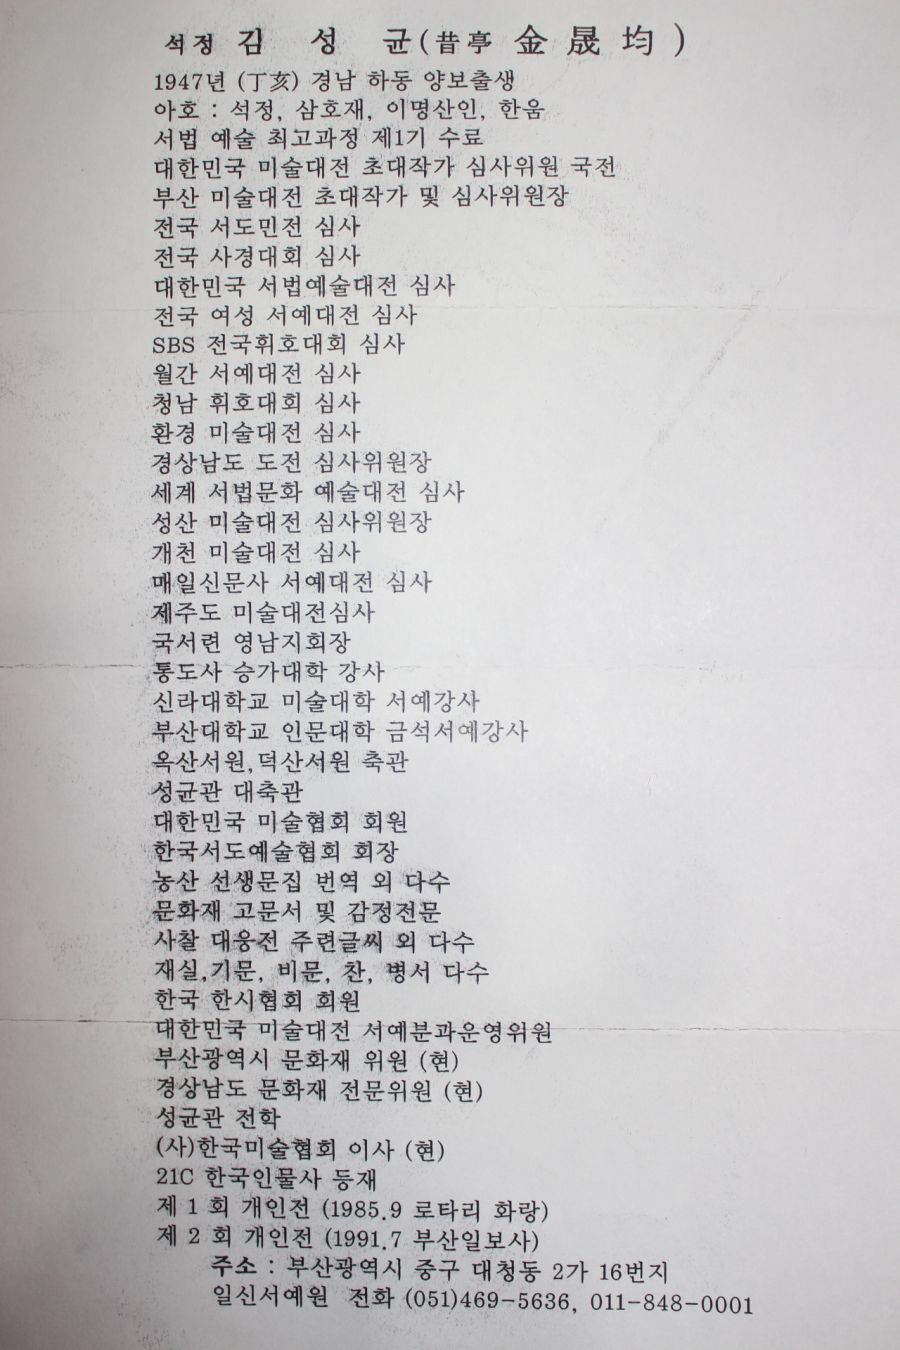 석정 김 성 균(昔亭 金晟均)
1947년 (丁亥) 경남 하동 양보출생
아호 : 석정, 삼호재, 이명산인, 한움
서법 예술 최고과정 제1기 수료
대한민국 미술대전 초대작가 심사위원 국전
부산 미술대전 초대작가 및 심사위원장
전국 서도민전 심사
전국 사경대회 심사
대한민국 서법예술대전 심사
전국 여성 서예대전 심사
SBS 전국휘호대회 심사
월간 서예대전 심사
청남 휘호대회 심사
환경 미술대전 심사
경상남도 도전 심사위원장
세계 서법문화 예술대전 심사
성산 미술대전 심사위원장
개천 미술대전 심사
매일신문사 서예대전 심사
제주도 미술대전심사
국서련 영남지회장
통도사 승가대학 강사
신라대학교 미술대학 서예강사
부산대학교 인문대학 금석서예강사
옥산서원,덕산서원 축관
성균관 대축관
대한민국 미술협회 회원
한국서도예술협회 회장
농산 선생문집 번역 외 다수
문화재 고문서 및 감정전문
사찰 대웅전 주련글씨 외 다수
재실,기문, 비문, 찬, 병서 다수
한국 한시협회 회원
대한민국 미술대전 서예분과운영위원
부산광역시 문화재 위원 (현)
경상남도 문화재 전문위원 (현)
성균관 전학
(사)한국미술협회 이사 (현)
21C 한국인물사 등재
제 1 회 개인전 (1985.9 로타리 화랑)
제 2 회 개인전 (1991.7 부산일보사)
주소 : 부산광역시 중구 대청동 2가 16번지
일신서예원 전화 (051)469-5636, 011-848-0001